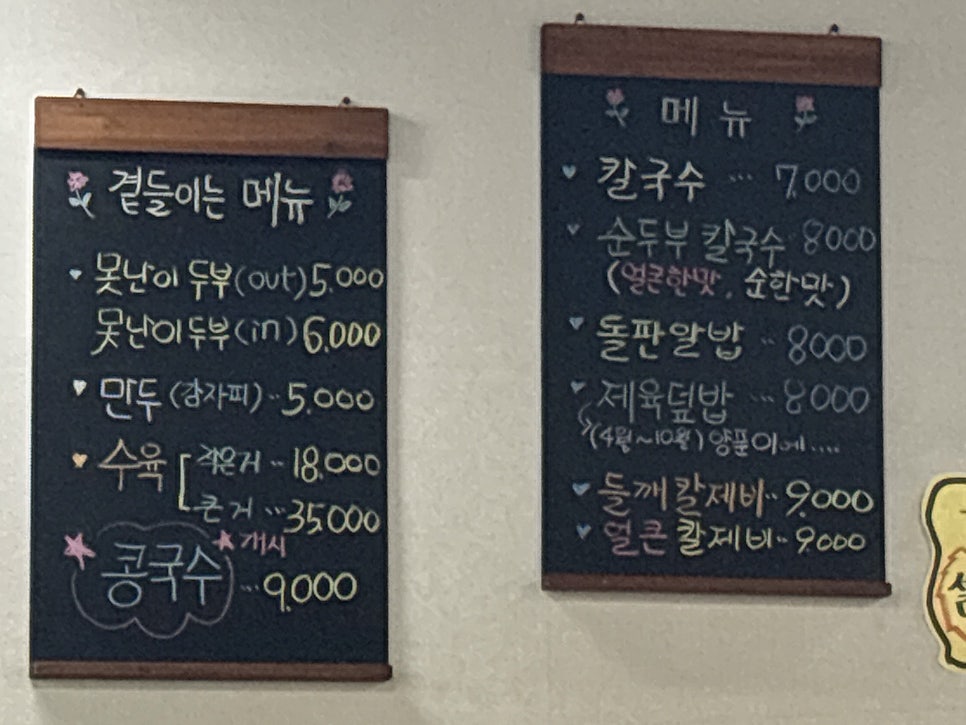 곁들이는 메뉴
못난이 두부(out) 5.000
못난이 두부(in) 6.000
만두 (감자피) ·· 5.000
수육 작은거 ·· 18.000
큰거 ··· 35.000
개시
콩국수 ··· 9.000
메뉴
칼국수 ··· 7.000
순두부 칼국수 8000
(얼큰한맛, 순한맛)
돌판알밥 ·· 8000
제육덮밥 ··· 8000
(4월~10월) 양푼이에....
들깨칼제비·· 9.000
얼큰 칼제비·· 9.000